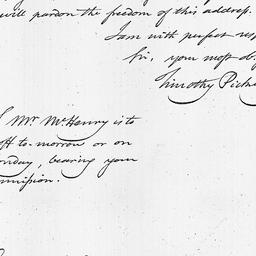 will pardon the freedom of this address.
I am with perfect res
Sir, your most ob
Timothy Picke
Mr. McHenry is to
off to-morrow or on
onday, bearing your
mmission.